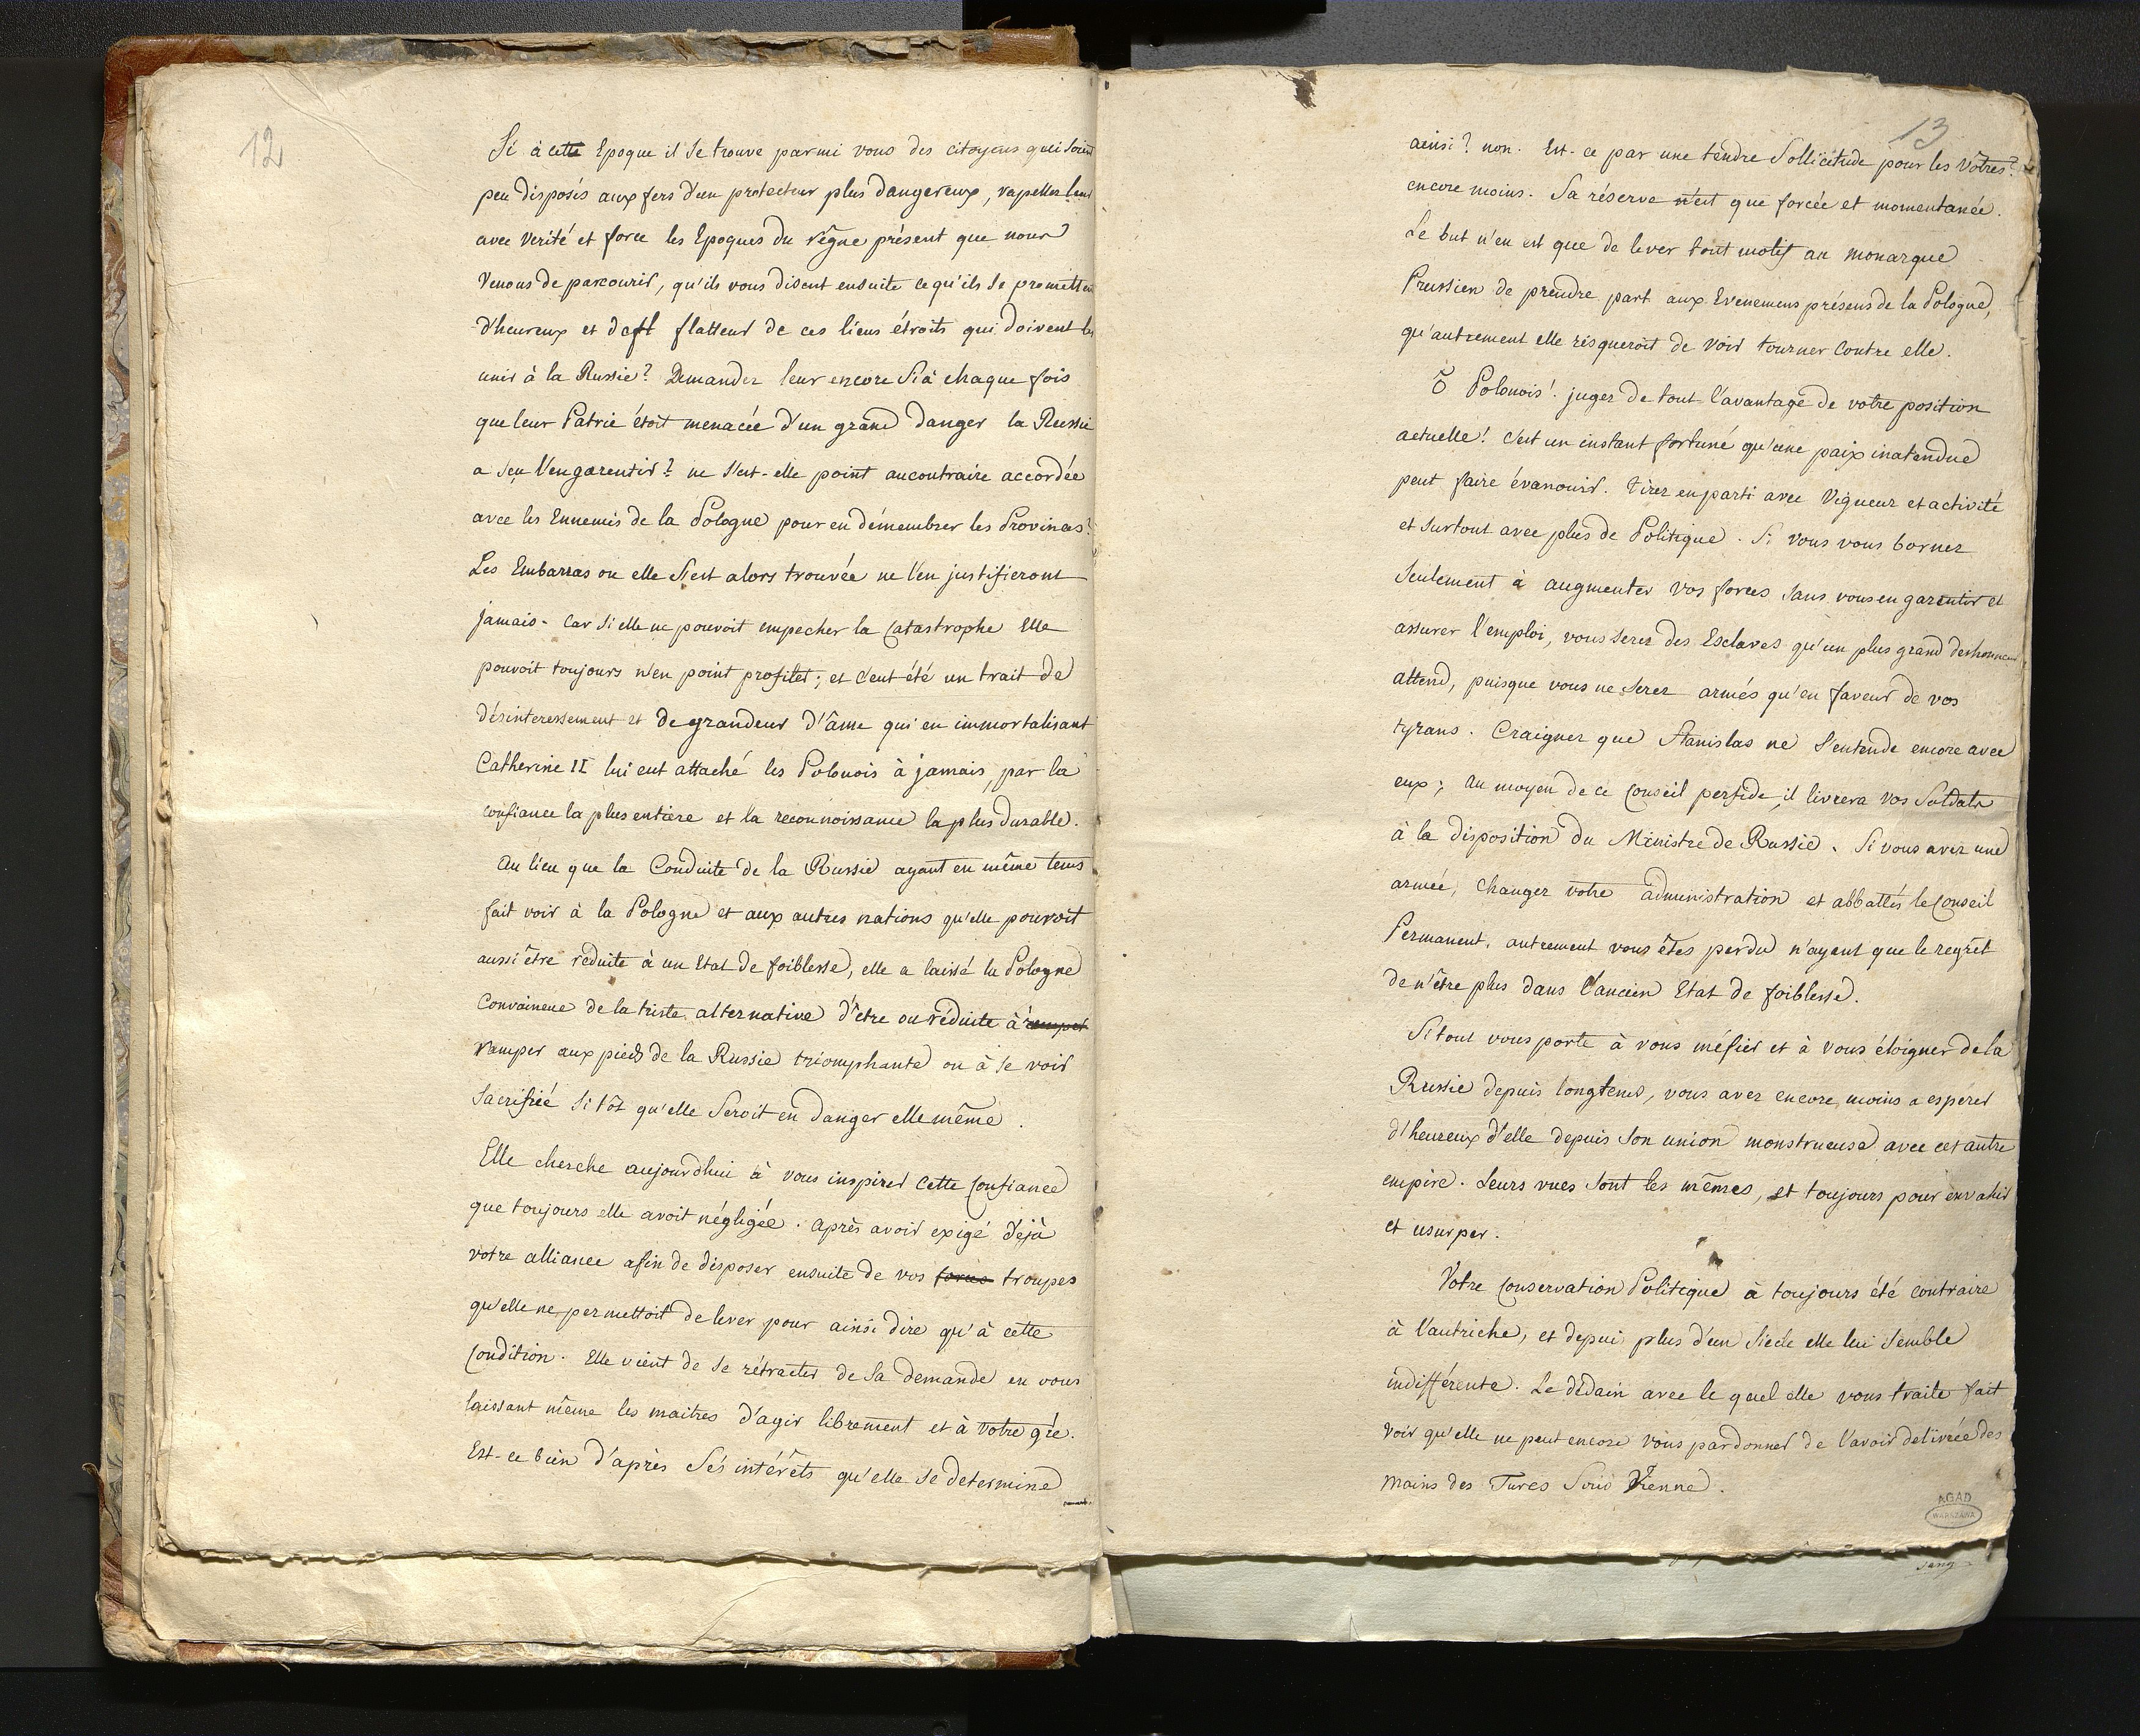 12
Si à cette Epoque il se trouve parmi vous des citoyens qui soient
peu disposés aux fers d'un protecteur plus dangereux, rapeller leur
avec verité et force les Epoques du règne présent que nous
Venons de parcourir, qu'ils vous disent ensuite ce qu'ils se promettent
d'heureux et de flatteur de ces liens étroits qui doivent les
unir à la Russie? Demander leur encore Si à chaque fois
que leur Patrie étoit menacée d'un grand danger la Russie
a seu l'en garentir? ne s'est-elle point aucontraire accordée
avec les Ennemis de la Pologne pour en démembrer les Provinces?
Les Embarras ou elle s'est alors trouvée ne l'en justifieront
jamais - Car si elle ne pouvoit empecher la Catastrophe Elle
pouvoit toujours n'en point profiter; et c'eut été un trait de
désinteressement et de grandeur d'âme qui en immortalisant
Catherine II lui eut attaché les Polonois à jamais, par la
confiance la plus entiere et la reconnoissance la plus durable.
Au lieu que la Conduite de la Russie ayant en même tems
fait voir à la Pologne et aux autres nations qu'elle pouvoit
aussi être réduite à un Etat de foiblesse, elle a laissé la Pologne
Convaincue de la triste alternative d'etre ou réduite à ramper
ramper aux pieds de la Russie triomphante ou à se voir
Sacrifiée si tôt qu'elle Seroit en danger elle même.
Elle cherche aujourdhui à vous inspirer cette Confiance
que toujours elle avoit négligée. Après avoir exigé déjà
votre alliance afin de disposer ensuite de vos forces troupes
qu'elle ne permettoit de lever pour ainsi dire qu'à cette
Condition. Elle vient de se rétracter de sa demande en vous
laissant même les maitres d'agir librement et à votre gré.
Est-ce bien d'après Ses intérêts qu'elle se determine
13
ainsi? non. Est-ce par une tendre Sollicitude pour les vôtres?
encore moins. Sa réserve n'est que forcée et momentanée.
Le but n'en est que de lever tout motif au monarque
Prussien de prendre part aux Evenemens présens de la Pologne,
qu'autrement elle risqueroit de voir tourner Contre elle.
Õ Polonois! juger de tout l'avantage de votre position
actuelle! c'est un instant fortuné qu'une paix inatendue
peut faire évanouir. tirez en parti avec Vigueur et activité
et surtout avec plus de Politique. Si vous vous borner
Seulement à augmenter vos forces sans vous en garentir et
assurer l'emploi, vous serez des Esclaves qu'un plus grand deshonneur
attend, puisque vous ne serez armés qu'en faveur de vos
tyrans. Craigner que Stanislas ne s'entende encore avec
eux; au moyen de ce Conseil perfide, il livrera vos Soldats
à la disposition du Ministre de Russie. Si vous avez une
armée, changer votre administration et abbattés le Conseil
Permanent, autrement vous êtes perdu n'ayant que le regret
de n'être plus dans l'ancien Etat de foiblesse.
Si tout vous porte à vous méfier et à vous éloigner de la
Russie depuis longtems, vous avez encore moins a espérer
d'heureux d'elle depuis son union monstrueuse avec cet autre
empire. Leurs vues sont les mêmes, et toujours pour envahir
et usurper.
Votre Conservation Politique à toujours été contraire
à l'autriche, et depuis plus d'un siecle elle lui semble
indifférente. Le dédain avec le quel elle vous traite fait
voir qu'elle ne peut encore vous pardonner de l'avoir delivrée des
mains des Turcs Sous Vienne.
AGAD
WARSZAWA